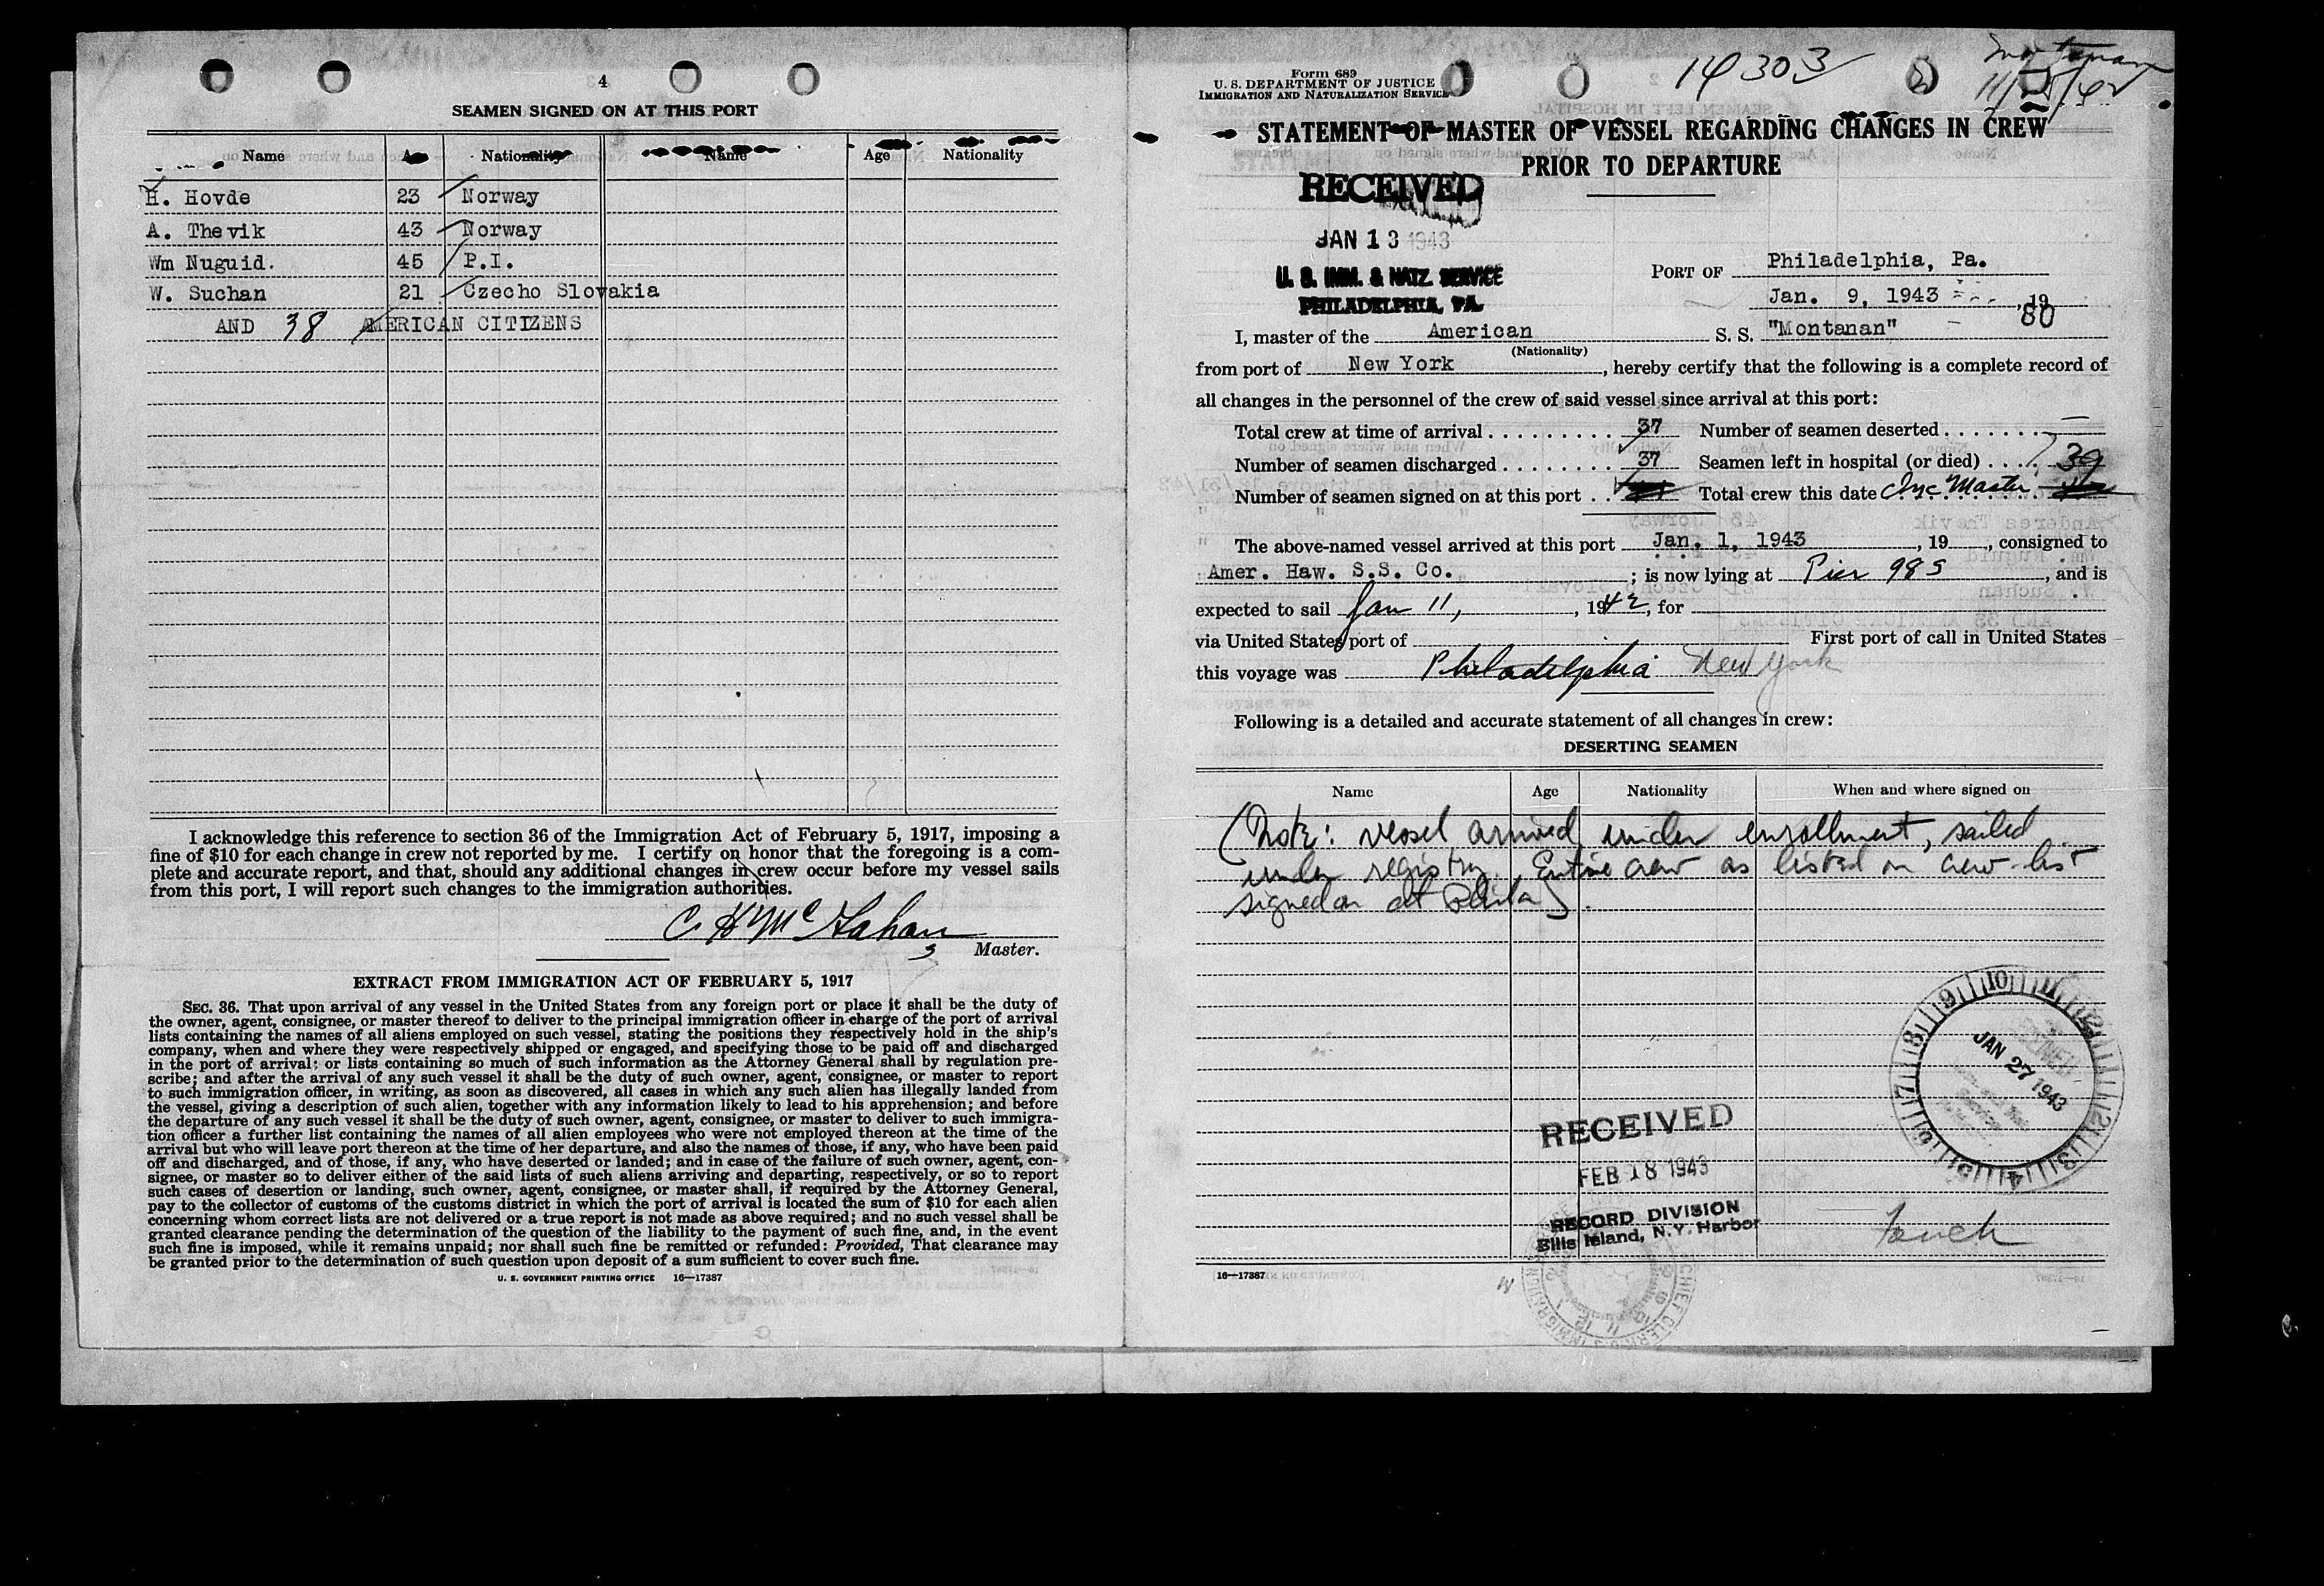 4
SEAMEN SIGNED ON AT THIS PORT
Name Nationality Name Age Nationality
H. Hovde 23 Norway
A. Thevik 43 Norway
Wm Nuguid. 45 P.I.
W. Suchan 21 Czecho Slovakia
AND 38 AMERICAN CITIZENS
I acknowledge this reference to section 36 of the Immigration Act of February 5, 1917, imposing a
fine of $10 for each change in crew not reported by me. I certify on honor that the foregoing is a com-
plete and accurate report, and that, should any additional changes in crew occur before my vessel sails
from this port, I will report such changes to the immigration authorities.
C H McGahan
Master.
EXTRACT FROM IMMIGRATION ACT OF FEBRUARY 5, 1917
SEC. 36. That upon arrival of any vessel in the United States from any foreign port or place it shall be the duty of
the owner, agent, consignee, or master thereof to deliver to the principal immigration officer in charge of the port of arrival
lists containing the names of all aliens employed on such vessel, stating the positions they respectively hold in the ship's
company, when and where they were respectively shipped or engaged, and specifying those to be paid off and discharged
in the port of arrival; or lists containing so much of such information as the Attorney General shall by regulation pre-
scribe; and after the arrival of any such vessel it shall be the duty of such owner, agent, consignee, or master to report
to such immigration officer, in writing, as soon as discovered, all cases in which any such alien has illegally landed from
the vessel, giving a description of such alien, together with any information likely to lead to his apprehension; and before
the departure of any such vessel it shall be the duty of such owner, agent, consignee, or master to deliver to such immigra-
tion officer a further list containing the names of all alien employees who were not employed thereon at the time of the
arrival but who will leave port thereon at the time of her departure, and also the names of those, if any, who have been paid
off and discharged, and of those, if any, who have deserted or landed; and in case of the failure of such owner, agent, con-
signee, or master so to deliver either of the said lists of such aliens arriving and departing, respectively, or so to report
such cases of desertion or landing, such owner, agent, consignee, or master shall, if required by the Attorney General,
pay to the collector of customs of the customs district in which the port of arrival is located the sum of $10 for each alien
concerning whom correct lists are not delivered or a true report is not made as above required; and no such vessel shall be
granted clearance pending the determination of the question of the liability to the payment of such fine, and, in the event
such fine is imposed, while it remains unpaid; nor shall such fine be remitted or refunded: Provided, That clearance may
be granted prior to the determination of such question upon deposit of a sum sufficient to cover such fine.
U. S. GOVERNMENT PRINTING OFFICE 16—17387
Form 689
U. S. DEPARTMENT OF JUSTICE
IMMIGRATION AND NATURALIZATION SERVICE
14303
STATEMENT OF MASTER OF VESSEL REGARDING CHANGES IN CREW
PRIOR TO DEPARTURE
RECEIVED
JAN 13 1943
U. S. IMM. & NATZ. SERVICE
PHILADELPHIA, PA.
PORT OF Philadelphia, Pa.
Jan. 9, 1943 , 19
80
I, master of the American S. S. "Montanan"
(Nationality)
from port of New York, hereby certify that the following is a complete record of
all changes in the personnel of the crew of said vessel since arrival at this port:
Total crew at time of arrival 37 Number of seamen deserted —
Number of seamen discharged 37 Seamen left in hospital (or died) 39
Number of seamen signed on at this port Total crew this date Inc Master
The above-named vessel arrived at this port Jan. 1, 1943, 19, consigned to
Amer. Haw. S.S. Co. ; is now lying at Pier 98 S, and is
expected to sail Jan 11, , 1942, for
via United States port of First port of call in United States
this voyage was Philadelphia New York
Following is a detailed and accurate statement of all changes in crew:
DESERTING SEAMEN
Name Age Nationality When and where signed on
(Note: vessel arrived under enrollment, sailed
under registry. Entire crew as listed on crew list
signed on at Phila).
JAN 27 1943
RECEIVED
FEB 18 1943
RECORD DIVISION
Ellis Island, N.Y. Harbor
16—17387